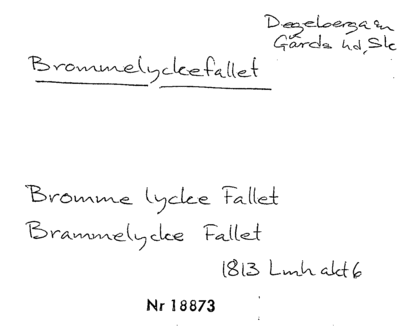 Degeberga sn
Gärds hd, Sk
Brommelyckefallet
Bromme lycke Fallet
Brammelycke Fallet
1813 Lmh akt 6
Nr 18873